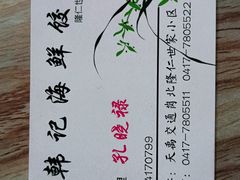 韩记海鲜饺
隆仁世
孔晓禄
4170799
：天禹交通岗北隆仁世家小区
：0417-7805511 0417-7805522